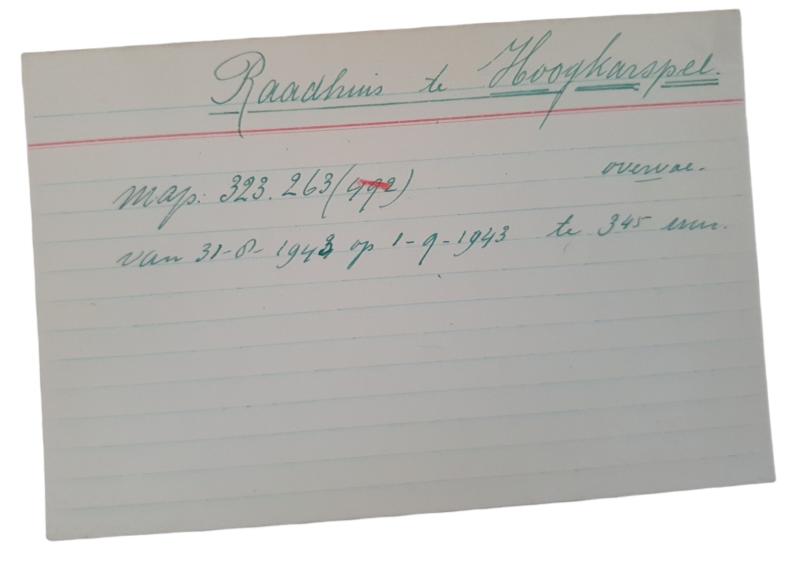 Raadhuis te Hoogkarspel.
map. 323.263 (492) overval.
van 31-8-1943 op 1-9-1943 te 3⁴⁵ uur.